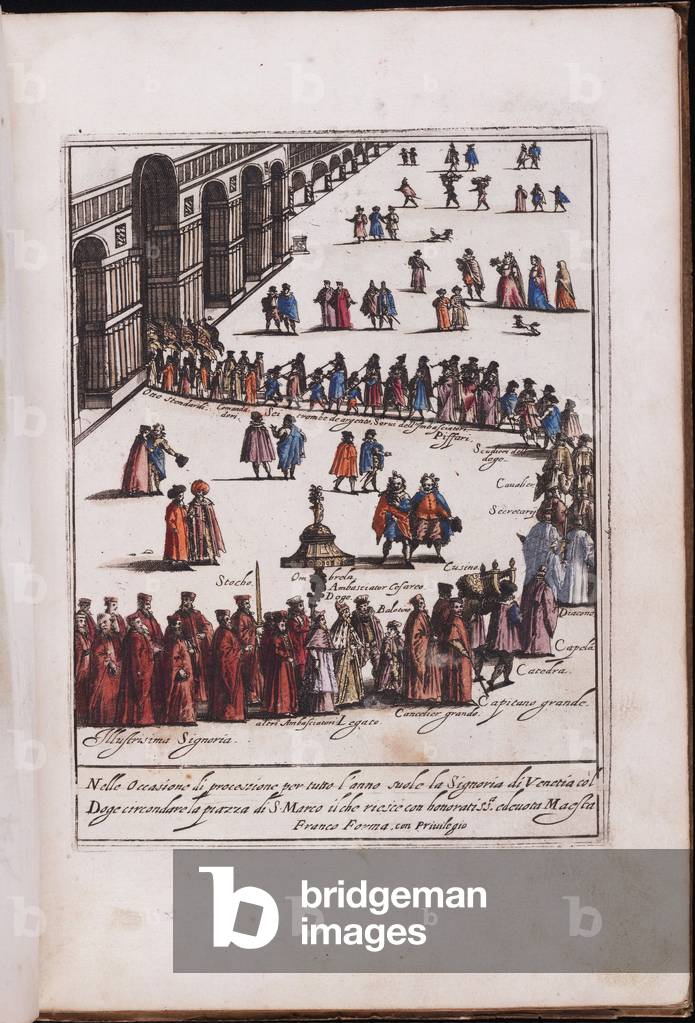 Otto Stendardi.
Comanda
dori.
Sei
trombe de argento.
Servi dell'Ambasciatori
Piffari.
Scudieri del
doge.
Cavalier
Secretarij
Stocho.
Om brela
Ambasciator Cesareo
Doge.
Balotino
Cusino
Diacono
Capelã
Catedra.
Capitano grande.
Cancelier grande.
altri Ambasciatori Legato.
Illustrissima Signoria.
Nelle Occasione di processione per tutto l'anno suole la Signoria di Venetia col
Doge circondare la piazza di S. Marco il che riesce con honoratiss.ª e devota Maesta
Franco Forma. con Privilegio
b bridgeman
images